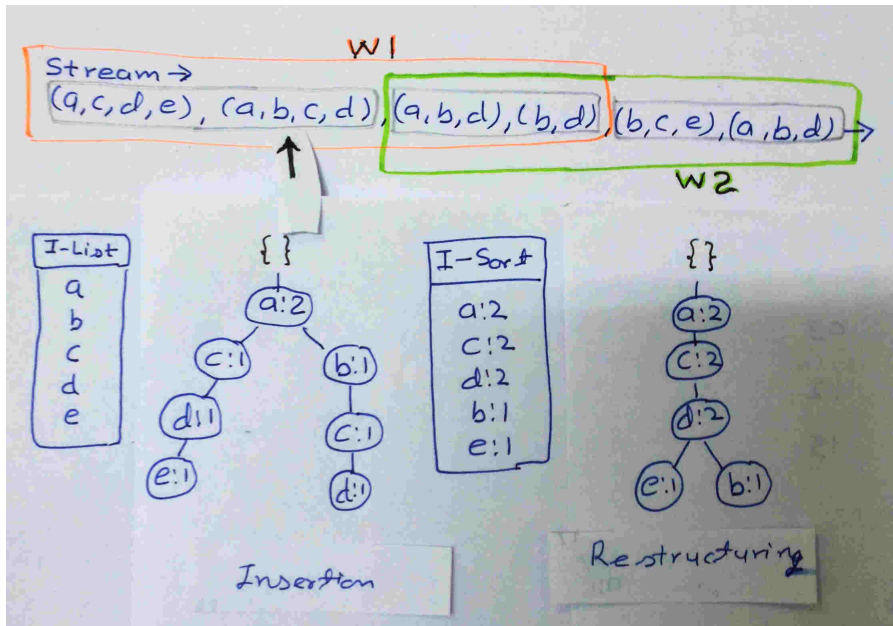 W1
Stream →
(a,c,d,e), (a,b,c,d), (a,b,d),(b,d),(b,c,e),(a,b,d) →
W2
I-List
a
b
c
d
e
{}
a:2
c:1
b:1
d:1
c:1
e:1
d:1
Insertion
I-Sort
a:2
c:2
d:2
b:1
e:1
{}
a:2
c:2
d:2
e:1
b:1
Restructuring